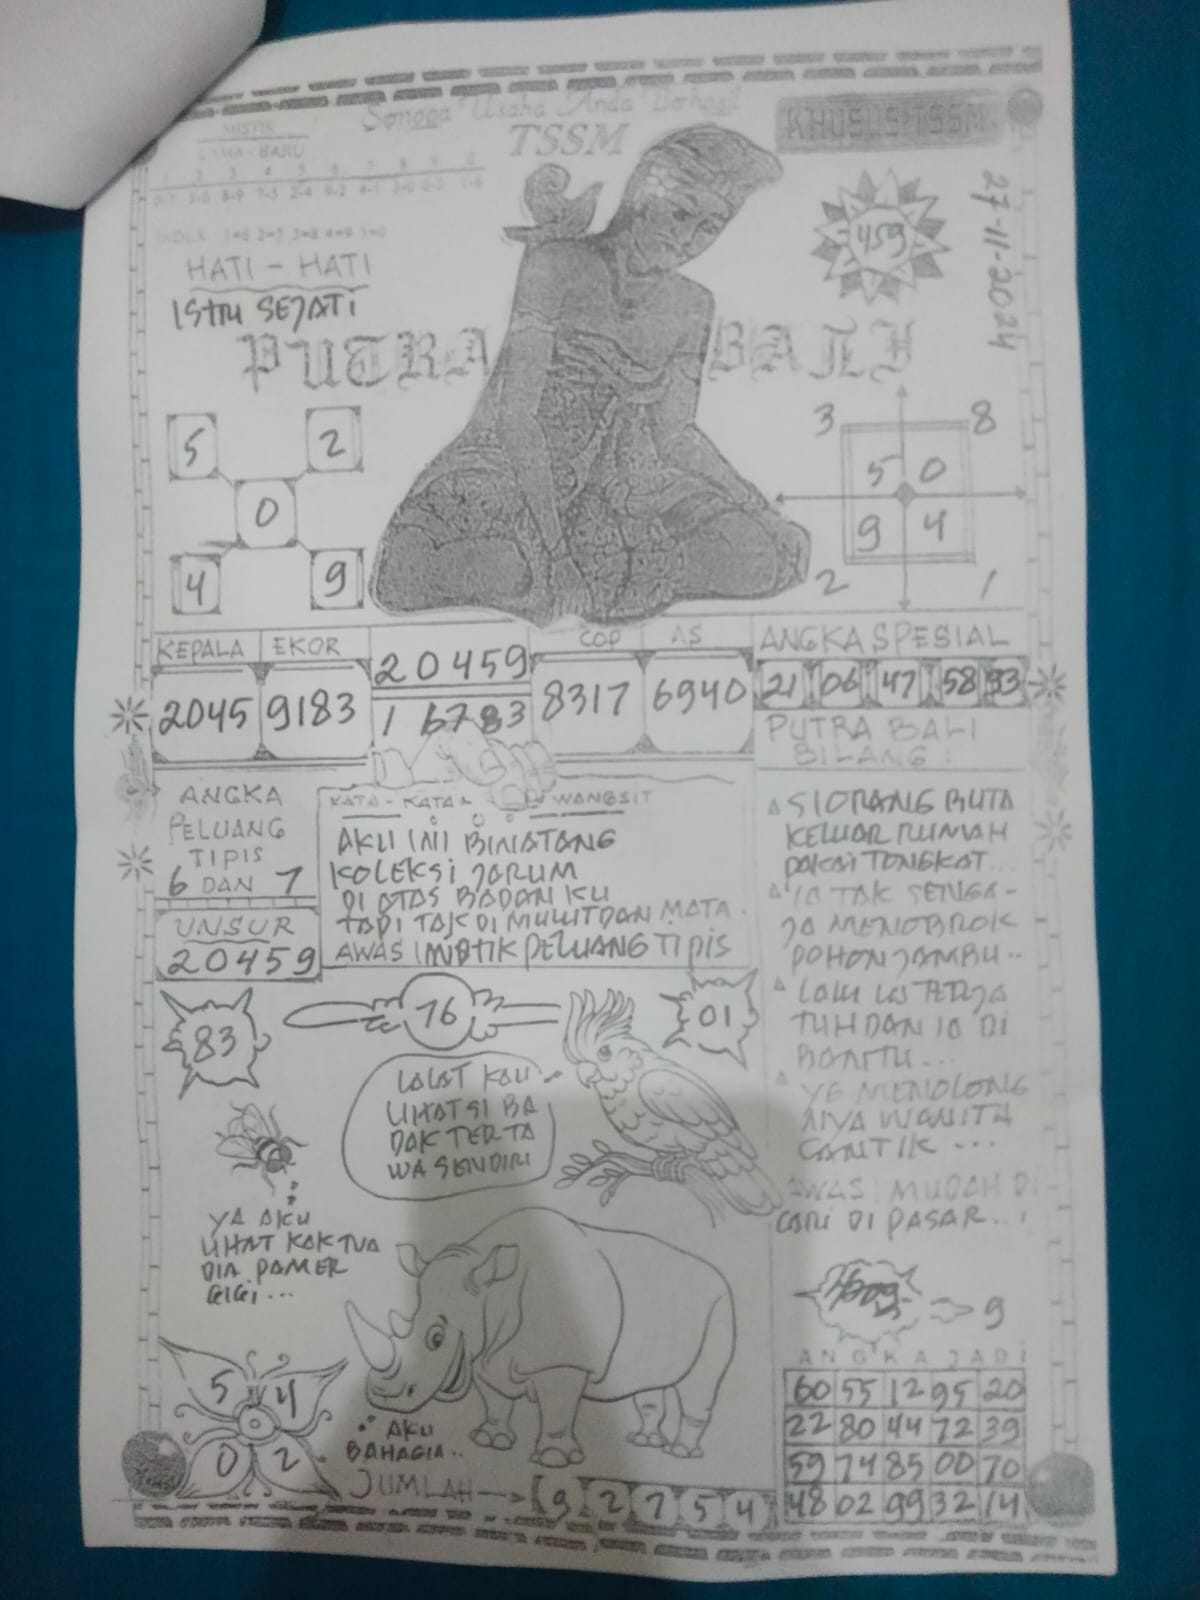 Semoga Usaha Anda Berhasil
TSSM
KHUSUS TSSM
MISTIK
LAMA - BARU
INDEX 1=6 2=7 3=8 4=9 5=0
27-11-2024
459
HATI - HATI
ISTRI SEJATI
PUTRA BALI
5 2
0
4 9
3 8
5 0
9 4
2 1
KEPALA EKOR
2045 9183
20459
16783
COP AS
8317 6940
ANGKA SPESIAL
21 06 47 58 93
PUTRA BALI
BILANG :
ANGKA
PELUANG
TIPIS
6 DAN 7
UNSUR
20459
KATA - KATA WANGSIT
AKU INI BINATANG
KOLEKSI JARUM
DI ATAS BADAN KU
TAPI TAK DI MULUT DAN MATA
AWAS MISTIK PELUANG TIPIS
SI ORANG BUTA
KELUAR RUMAH
PAKAI TONGKAT...
IA TAK SENGA-
JA MENOBROK
POHON JAMBU..
LALU IA TERJA
TUH DAN IA DI
BANTU...
YG MENOLONG
NYA WANITA
CANTIK ...
AWAS! MUDAH DI
CARI DI PASAR...!
83
76
01
LALAT KAU
LIHAT SI BA
DAK TERTA
WA SENDIRI
YA AKU
LIHAT KAKTUA
DIA PAMER
GIGI...
AKU
BAHAGIA..
5 4
0 2
JUMLAH 9 2 7 5 4
9
ANGKA JADI
60 55 12 95 20
22 80 44 72 39
59 74 85 00 70
48 02 99 32 14